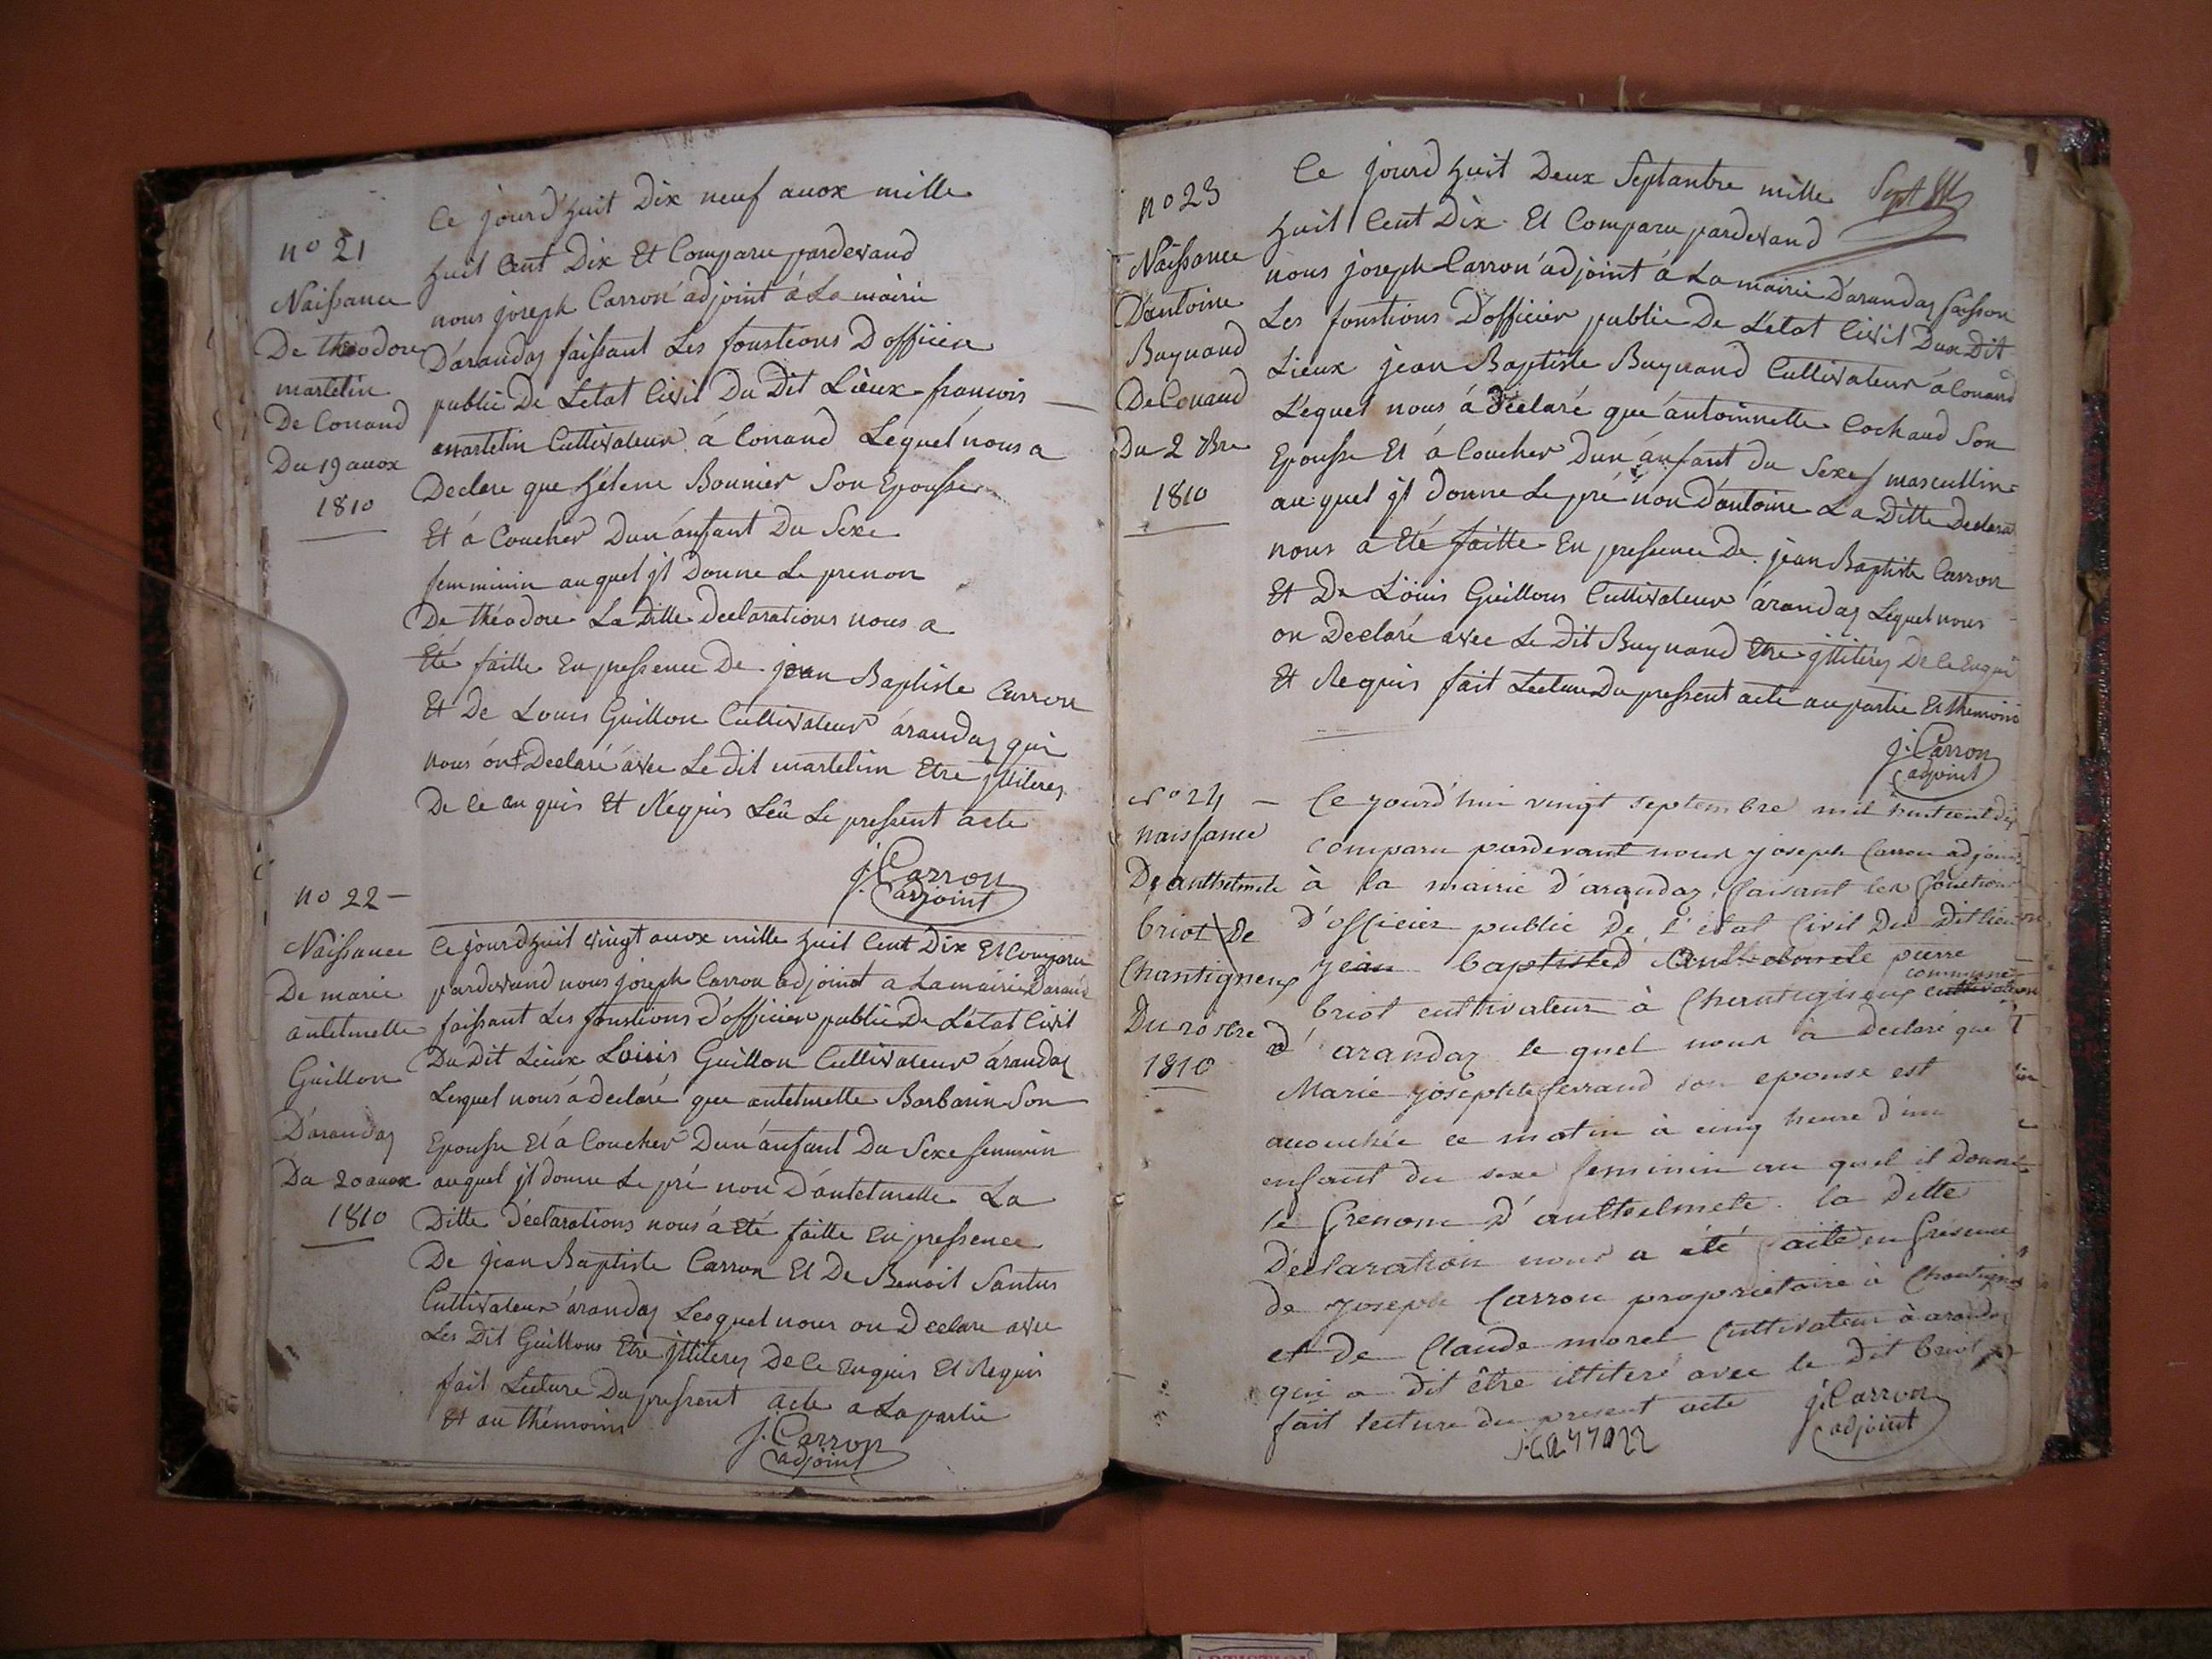 Ce jourd'huit Dix neuf auox mille
n° 21
huit Cent Dix Et Comparu pardevand
Naissance
nous joseph Carron adjoint á La mairie
De théodore
D'arandas faissant Les fonstions D officier
martelin
publie De Letat Civil Du Dit Lieux francois
De Conand
martelin Cultivateur á Conand Lequel nous a
Du 19 auox
Declare que héleine Bonnier Son Epousse
1810
Et á Coucher Dun ánfant Du Sexe
femminin auquel jl Donne Le prenon
De théodore La Ditte declarations nous a
Eté faitte En pressence De jean Baptiste Carron
Et De Louis Guillon Cultivateur árandas qui
nous ont Declaré ávec Le dit martelin Etre jlliteres
De ce an quis Et Requis Leû Le pressent acte
j. Carron
adjoint
n° 22 -
Naissance
De marie
antelmette
Guillon
D'arandas
Du 20 auox
1810
Ce jourdhuit vingt auox mille huit Cent Dix Et Comparu
pardevand nous joseph Carron adjoint a La mairie Darand
faissant Les fonstions d'officier publie De L'état Civil
Du Dit Lieux Louis Guillon Cultivateur árandas
Lesquel nous á déclaré que antelmette Barbarin Son
Epousse Et á Coucher Dun ánfant Du Sexe feminin
auquel jl donne Le pré non D'ántelmette La
Ditte Déclarations nous á Eté faitte En pressence
De jean Baptiste Carron Et De Benoit Santus
Cultivateur árandas Lesquel nous on Declare avec
Les Dit Guillons Etre jlliteres De Ce Enquis Et Requis
fait Lecture Du pressent acte a La partie
Et au thémoins
j. Carron
adjoint
n° 23
Naissance
D'antoine
Buynand
De Conand
Du 2 7bre
1810
Ce jourdhuit Deux Septantbre mille
Sept
huit Cent Dix Et Comparu pardevand
nous joseph Carron adjoint á La mairie D'arandas faisson
Les fonstions D'officier publie De L'état Civil Dux Dit
Lieux jean Baptiste Buynand Cultivateur á Conand
L'equel nous á Déclaré que ántoinnette Cochaud Son
Epousse Et á Coucher Dun ánfant du Sexe masculline
au quel jl donne Le pré non D'antoine La Ditte Declara
nous a Eté faitte En pressence De jean Baptiste Carron
Et De Loüis Guillons Cultivateur árandas Léquel nous
on Declaré avec Le Dit Buynand Etre jlliterés De Ce Enqui
Et Requis fait Lecture Du pressent acte au partie Et themoins
j. Carron
adjoint
N° 24 -
naissance
De anthelmete
briot De
Chantigneux
Du 20 7bre
1810
Ce yourd'hui vingt septembre mil huit cent dix
comparu pardevant nous yoseph Carron adjoint
à la mairie d'arandas, faisant les fonctions
d'officier public de l'état Civil Du Dit lieu
yean baptisted anthelmete pierre
commune
briot cultivateur à Chantigneux cultivateur
d'arandas le quel nous a declaré que
Marie yosephte ferrand son epouse est
acouchée ce matin à cinq heure d'un
enfant du sexe feminin au quel il donne
le prenom d'anthelmete. la ditte
déclaration nous a été faite en presence
de yoseph Carron proprietaire à Chantigneux
et de Claude moret Cultivateur à arandas
qui a dit être illiteré avec le dit briot
fait lecture du present acte
j. Carron
adjoint